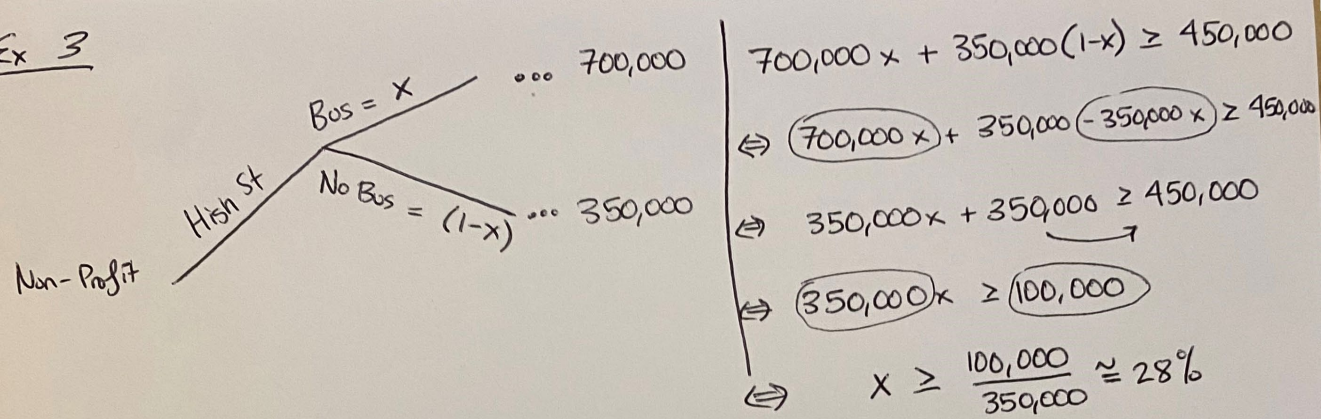 Ex 3
Bus = x ... 700,000
High St
No Bus = (1-x) ... 350,000
Non-Profit
700,000 x + 350,000 (1-x) ≥ 450,000
⇔ 700,000 x + 350,000 - 350,000 x ≥ 450,000
⇔ 350,000x + 350,000 ≥ 450,000
⇔ 350,000 x ≥ 100,000
⇔ x ≥ 100,000 / 350,000 ≅ 28%